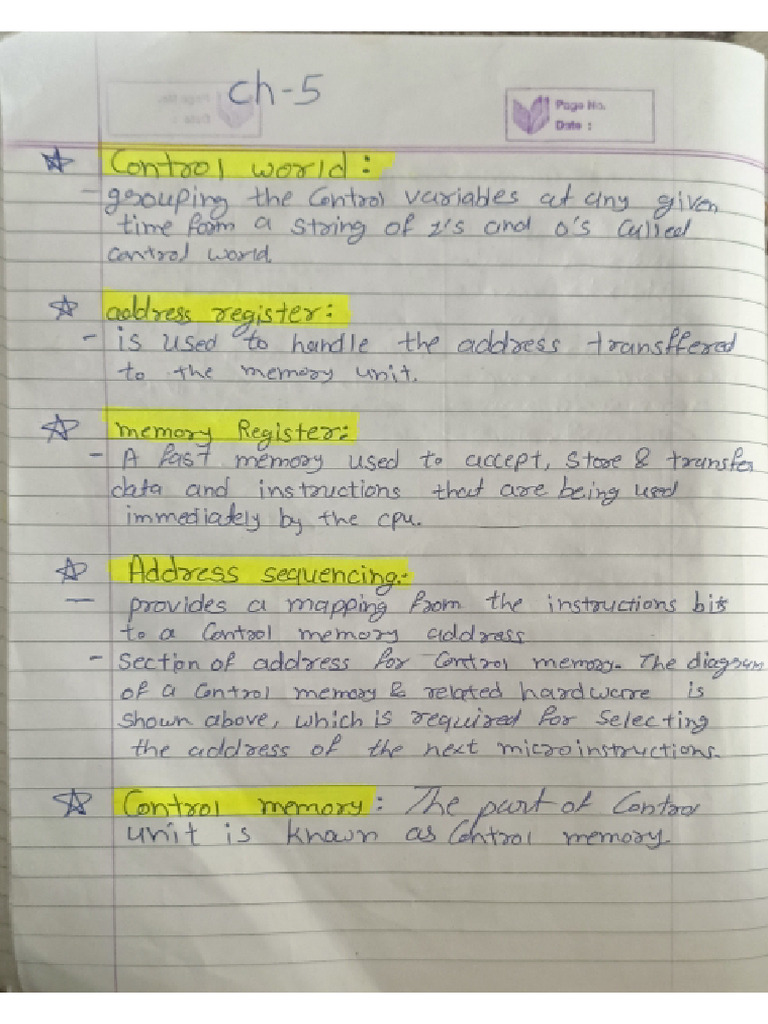 Ch-5
Page No.
Date :
☆ Control world :
- grouping the Control variables at any given
time form a string of 1's and 0's called
control world.
☆ address register :
- is used to handle the address transffered
to the memory unit.
☆ memory Register :
- A fast memory used to accept, store & transfer
data and instructions that are being used
immediately by the cpu.
☆ Address sequencing :-
- provides a mapping from the instructions bits
to a control memory address
- Section of address for control memory. The diagram
of a control memory & related hardware is
shown above, which is required for selecting
the address of the next microinstructions.
☆ Control memory : The part of Control
unit is known as Control memory.